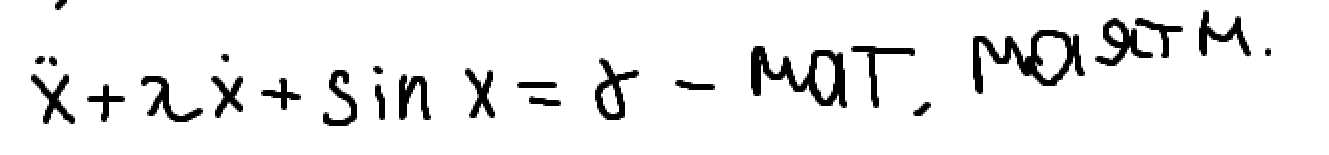 ẍ + λẋ + sin x = γ - мат. маятн.